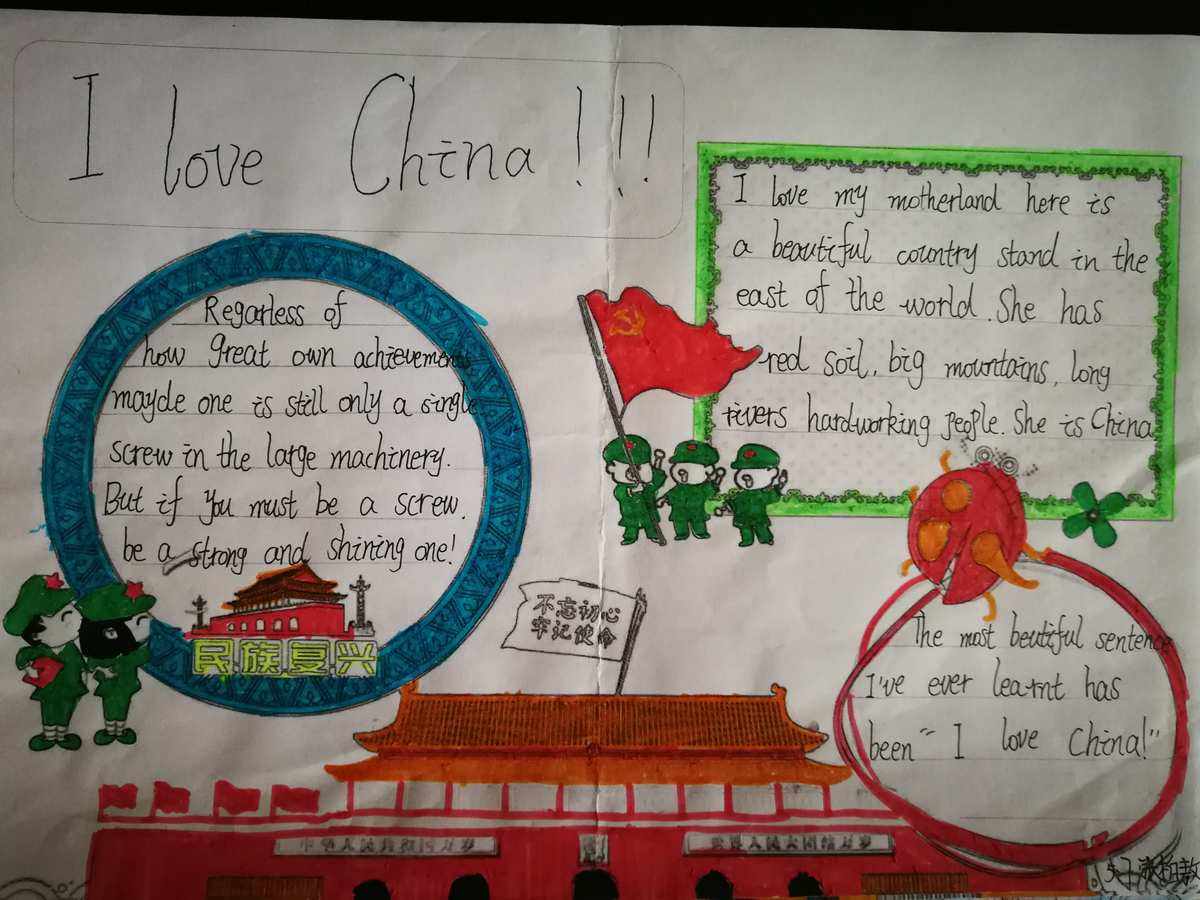 I love China!!!
Regarless of
how great own achievements
mayde one is still only a single
screw in the large machinery.
But if you must be a screw.
be a strong and shining one!
民族复兴
I love my motherland here is
a beautiful country stand in the
east of the world. She has
red soil, big mountains, long
rivers hardworking people. She is China
不忘初心
牢记使命
The most beutiful sentence
I've ever learnt has
been "I love China!"
中华人民共和国万岁
世界人民大团结万岁